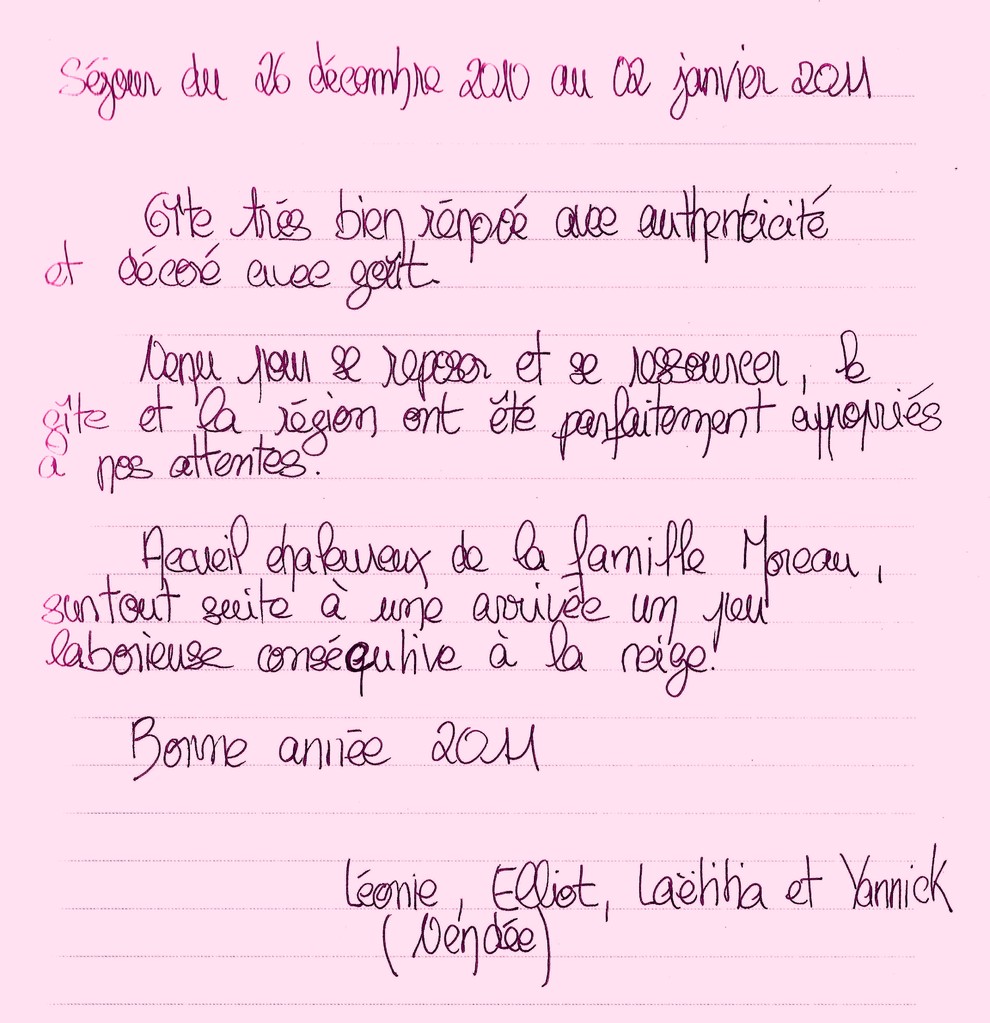 Séjour du 26 décembre 2010 au 02 janvier 2011
Gîte très bien rénové avec authenticité
et décoré avec goût.
Venu pour se reposer et se ressourcer, le
gîte et la région ont été parfaitement appropriés
à nos attentes.
Accueil chaleureux de la famille Moreau,
surtout suite à une arrivée un peu
laborieuse conséqutive à la neige!
Bonne année 2011
Léonie, Elliot, Laëtitia et Yannick
(Vendée)